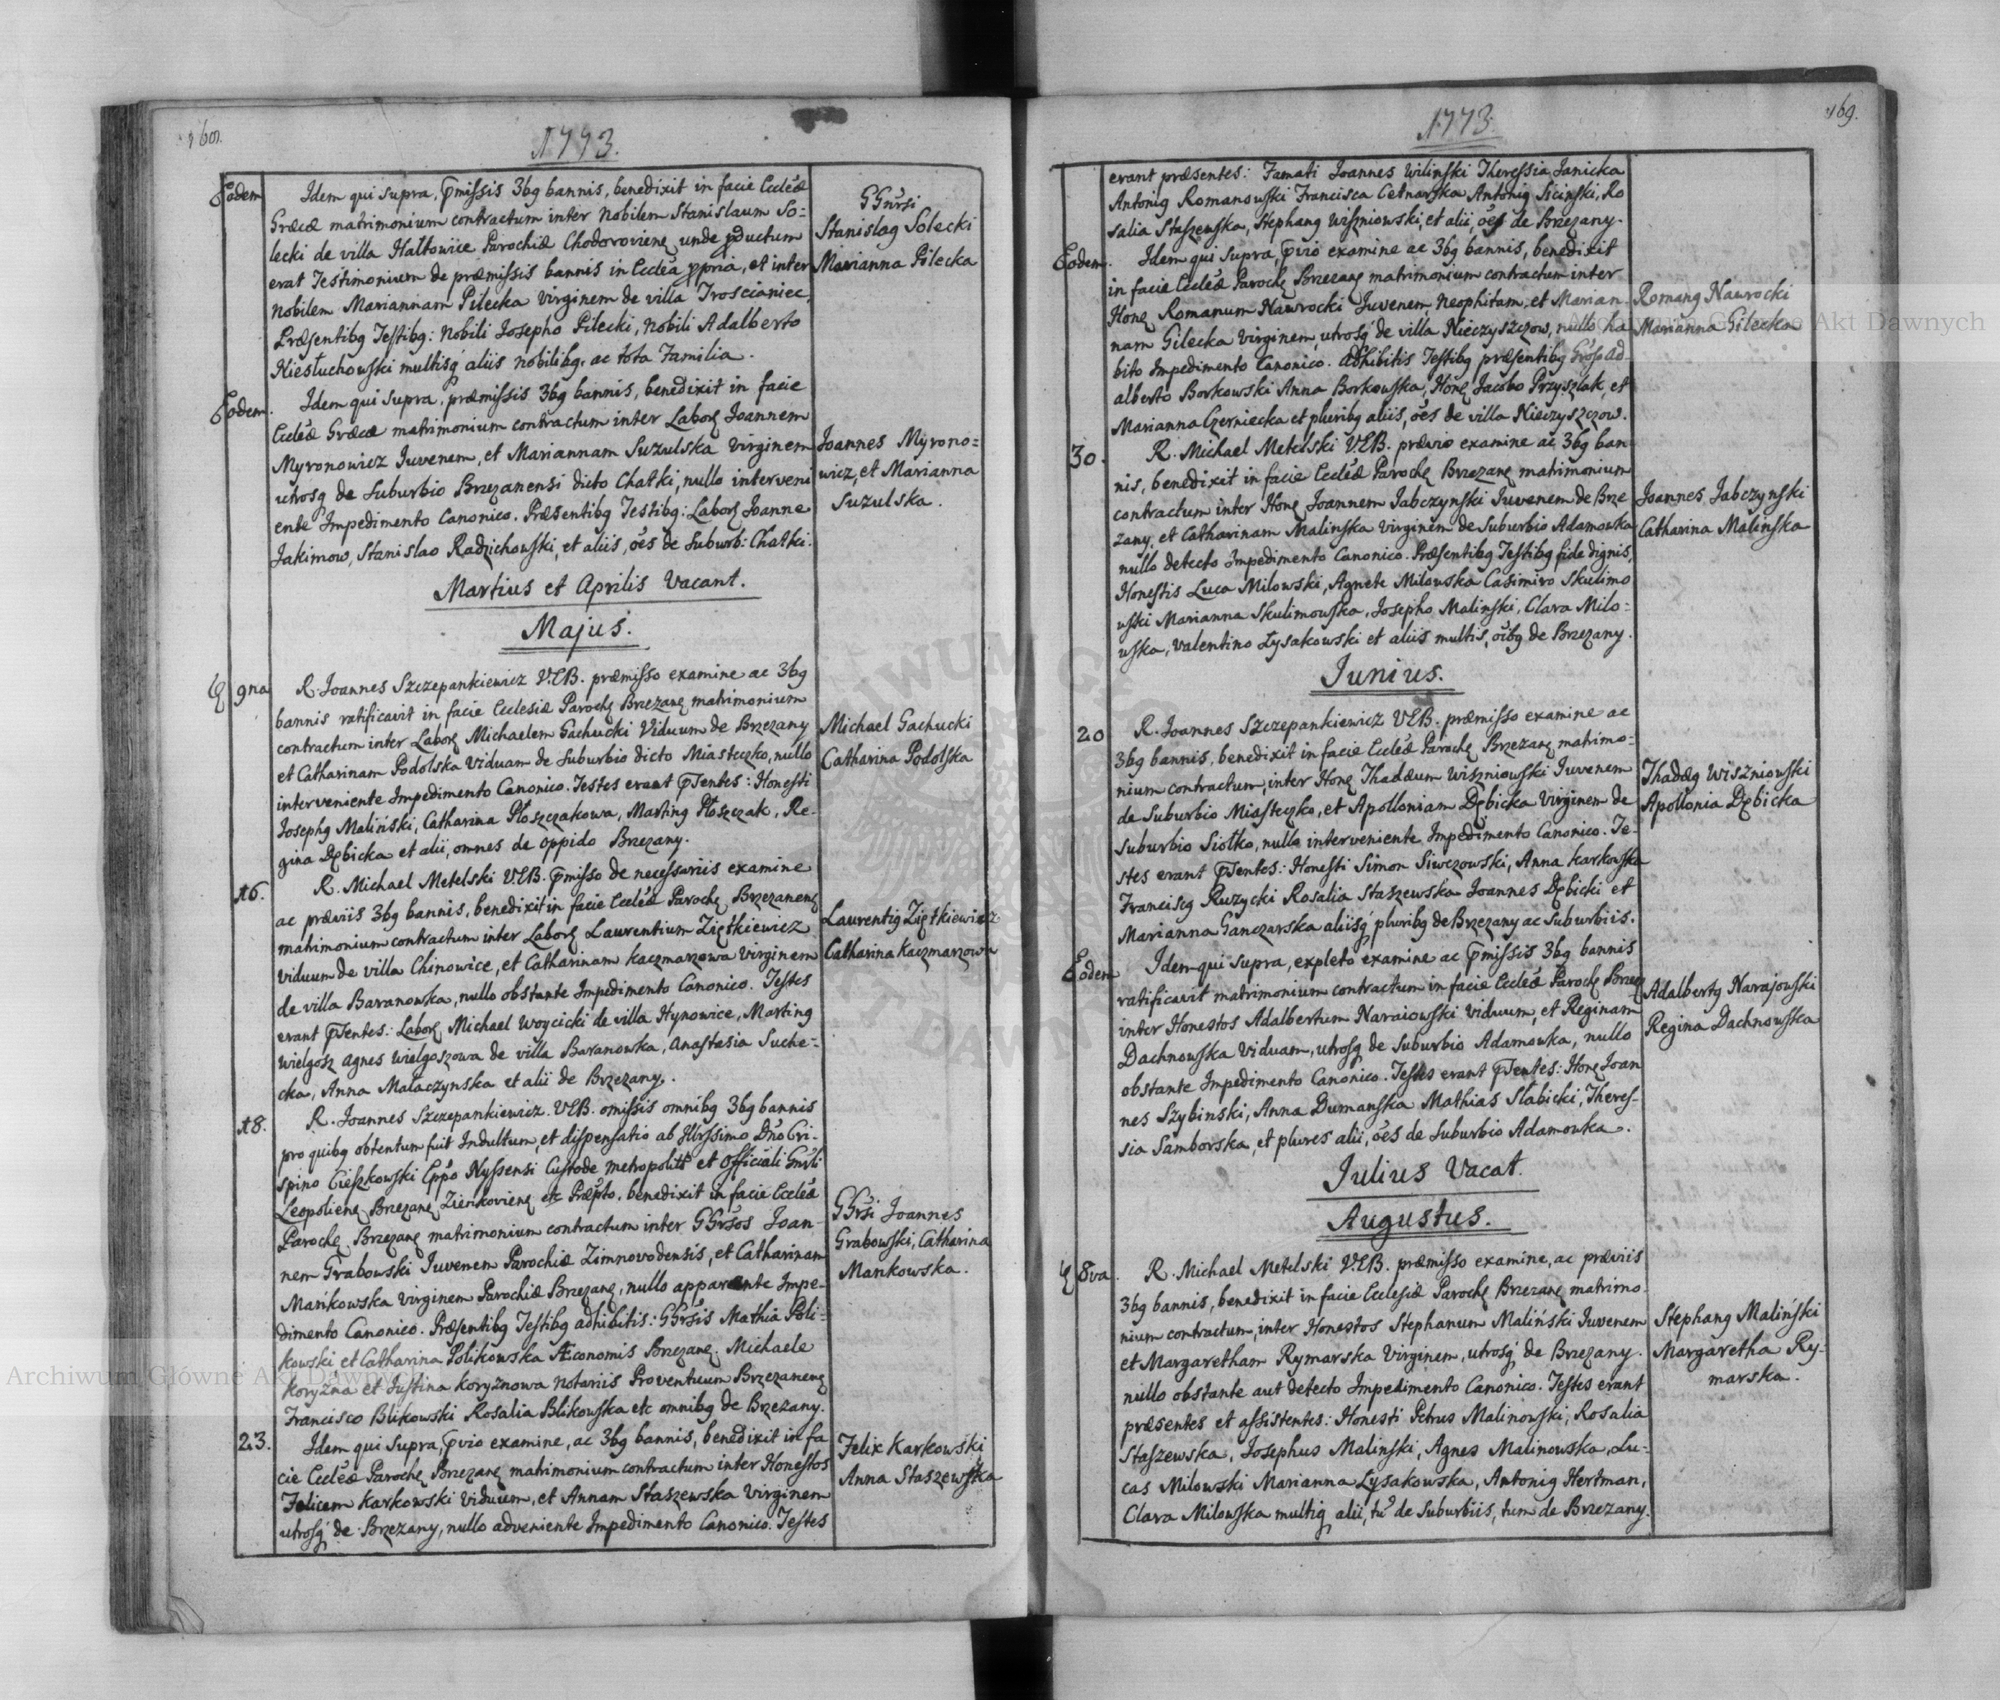 168.
1773.
Eodem
Idem qui supra, pmissis 3bg bannis, benedixit in facie Eccléæ
Græcæ matrimonium contractum inter Nobilem Stanislaum So=
lecki de villa Hałtowice Parochiæ Chodoroviene unde pductum
erat Testimonium de præmissis bannis in Eccléa ppria, et inter
Nobilem Mariannam Pilecka Virginem de villa Trościaniec,
Præsentibg Testibg: Nobili Josepho Pilecki, Nobili Adalberto
Niesłuchowski multisq aliis Nobilibg, ac tota Familia.
GGnrsi
Stanislag Solecki
Marianna Pilecka
Eodem.
Idem qui supra, præmissis 3bg bannis, benedixit in facie
Eccléæ Græcæ matrimonium contractum inter Labore Joannem
Myronowicz Juvenem, et Mariannam Suzulska Virginem
utrosq de Suburbio Brzezanensi dicto Chatki, nullo interveni
ente Impedimento Canonico. Præsentibg Testibg: Labore Joanne
Jakimow, Stanislao Radzichowski, et aliis, óes de Suburb: Chatki.
Joannes Myrono=
wicz, et Marianna
Suzulska.
Martius et Aprilis Vacant.
Majus.
9na
R. Joannes Szczepankiewicz V.E.B. præmisso examine ac 3bg
bannis ratificavit in facie Ecclesiæ Paroche Brzezane matrimonium
contractum inter Labore Michaelem Gachucki Viduum de Brzezany
et Catharinam Podolska Viduam de Suburbio dicto Miasteczko, nullo
interveniente Impedimento Canonico. Testes erant pTentes: Honesti
Josephg Maliński, Catharina Płoszczakowa, Marting Płoszczak, Re-
gina Dębicka et alii, omnes de oppido Brzezany.
Michael Gachucki
Catharina Podolska
16.
R. Michael Metelski V.E.B. pmisso de necessariis examine
ac præviis 3bg bannis, benedixit in facie Eccléæ Paroche Brzezanene
matrimonium contractum inter Labore Laurentium Ziętkiewicz
Viduum de villa Chinowice, et Catharinam Kaczmarzowa Virginem
de villa Baranowka, nullo obstante Impedimento Canonico. Testes
erant pTentes: Labore Michael Woycicki de villa Hynowice, Marting
Wielgosz Agnes Wielgoszowa de villa Baranowka, Anastasia Suche-
cka, Anna Malaczynska et alii de Brzezany.
Laurentig Ziętkiewicz
Catharina Kaczmarzowa
18.
R. Joannes Szczepankiewicz. V.E.B. omissis omnibg 3bg bannis
pro quibg obtentum fuit Indultum, et dispensatio ab Illrssimo Dno Cri-
spino Cieszkowski Eppo Nyssensi, Custode Metropolitt et Officiali Gnrli
Leopoliene Brzezane Zienkoviene etc Præpto, benedixit in facie Eccléæ
Paroche Brzezane matrimonium contractum inter GGrsos Joan-
nem Grabowski Juvenem Parochiæ Zimnovodensis, et Catharinam
Mańkowska virginem Parochiæ Brzezane, nullo apparente Impe-
dimento Canonico. Præsentibg Testibg adhibitis: GGrsis Mathia Poli-
kowski et Catharina Polikowska Æconomis Brzezane. Michaele
Koryzna et Justina Koryznowa Notariis Proventuum Brzezanene
Francisco Blikowski Rosalia Blikowska etc omnibg de Brzezany.
GGrsi Joannes
Grabowski, Catharina
Mankowska.
23.
Idem qui supra, pvio examine, ac 3bg bannis, benedixit in fa
cie Eccléæ Paroche Brzezane matrimonium contractum inter Honestos
Felicem Karkowski Viduum, et Annam Staszewska Virginem
utrosq de Brzezany, nullo adveniente Impedimento Canonico. Testes
Felix Karkowski
Anna Staszewska
169.
1773.
erant præsentes: Famati Joannes Wilinski Theressia Janicka
Antonig Romanowski Francisca Cetnarska Antonig Sicinski, Ro
salia Staszewska, Stephang Wiszniowski, et alii, óes de Brzezany.
Eodem.
Idem qui supra, pvio examine ac 3bg bannis, benedixit
in facie Eccléæ Paroche Brzezane matrimonium contractum inter
Hone Romanum Nawrocki Juvenem, Neophitam, et Marian-
nam Gilecka Virginem utrosq de villa Nieczyszczow, nullo ha
bito Impedimento Canonico. Adhibitis Testibg præsentibg Groso Ad-
alberto Borkowski Anna Borkowska, Hone Jacobo Przyszlak, et
Marianna Czerniecka et pluribg aliis, óes de villa Nieczyszczow.
Romang Nawrocki
Marianna Gilecka
30.
R. Michael Metelski V.E.B. prævio examine ac 3bg ban-
nis, benedixit in facie Eccléæ Paroche Brzezane matrimonium
contractum inter Hone Joannem Jabczynski Juvenem de Brze
zany, et Catharinam Malinska Virginem de Suburbio Adamowka
nullo detecto Impedimento Canonico. Præsentibg Testibg fide dignis,
Honestis Luca Milowski, Agnete Milowska Casimiro Skulimo
wski Marianna Skulimowska, Josepho Malinski, Clara Milo-
wska, Valentino Łysakowski et aliis multis, oibg de Brzezany.
Joannes Jabczynski
Catharina Malinska
Junius.
20
R. Joannes Szczepankiewicz V.E.B. præmisso examine ac
3bg bannis, benedixit in facie Eccléæ Paroche Brzezane matrimo-
nium contractum, inter Hone Thadæum Wiszniowski Juvenem
de Suburbio Miasteczko, et Apolloniam Dębicka Virginem de
Suburbio Siołko, nullo interveniente Impedimento Canonico. Te-
stes erant pTentes: Honesti Simon Siwczowski, Anna Karkowska
Franciscg Ruzycki Rosalia Staszewska Joannes Dębicki et
Marianna Ganczarska aliisq pluribg de Brzezany ac Suburbiis.
Thadæg Wiszniowski
Apollonia Dębicka
Eodem
Idem qui supra, expleto examine ac pmissis 3bg bannis
ratificavit matrimonium contractum in facie Eccléæ Paroche Brzez
inter Honestos Adalbertum Naraiowski Viduum, et Reginam
Dachnowska Viduam, utrosq de Suburbio Adamowka, nullo
obstante Impedimento Canonico. Testes erant pTentes: Hone Joan
nes Szybinski, Anna Dumanska Mathias Słabicki, Theres-
sia Samborska, et plures alii, óes de Suburbio Adamowka.
Adalbertg Narajowski
Regina Dachnowska
Julius Vacat.
Augustus.
8va.
R. Michael Metelski V.E.B. præmisso examine, ac præviis
3bg bannis, benedixit in facie Ecclesiæ Paroche Brzezane matrimo
nium contractum, inter Honestos Stephanum Maliński Juvenem
et Margaretham Rymarska Virginem, utrosq de Brzezany.
nullo obstante aut detecto Impedimento Canonico. Testes erant
præsentes et assistentes: Honesti Petrus Malinowski, Rosalia
Staszewska, Josephus Malinski, Agnes Malinowska, Lu-
cas Milowski Marianna Łysakowska, Antonig Hertman,
Clara Milowska multig alii, tu de Suburbiis, tum de Brzezany.
Stephang Maliński
Margaretha Ry-
marska.
Archiwum Główne Akt Dawnych
Archiwum Główne Akt Dawnych